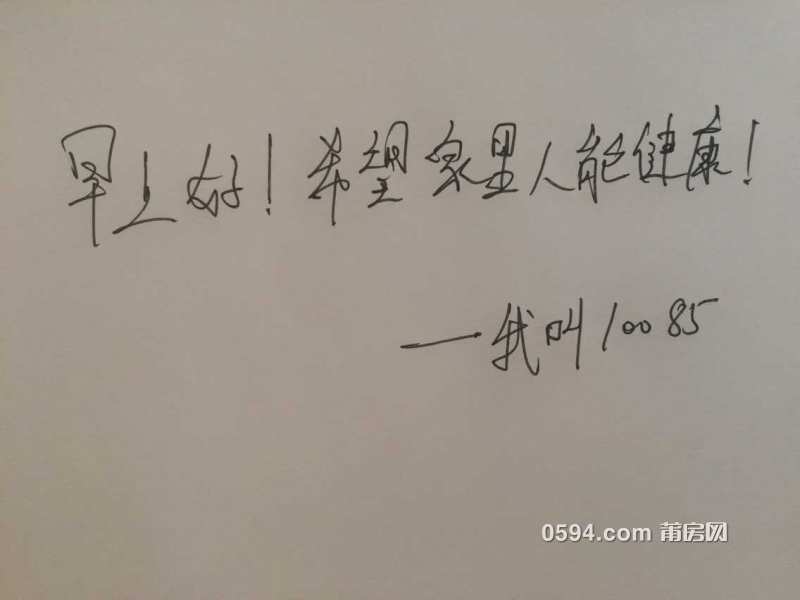 早上好!希望家里人能健康!
—我叫10085
0594.com 莆房网